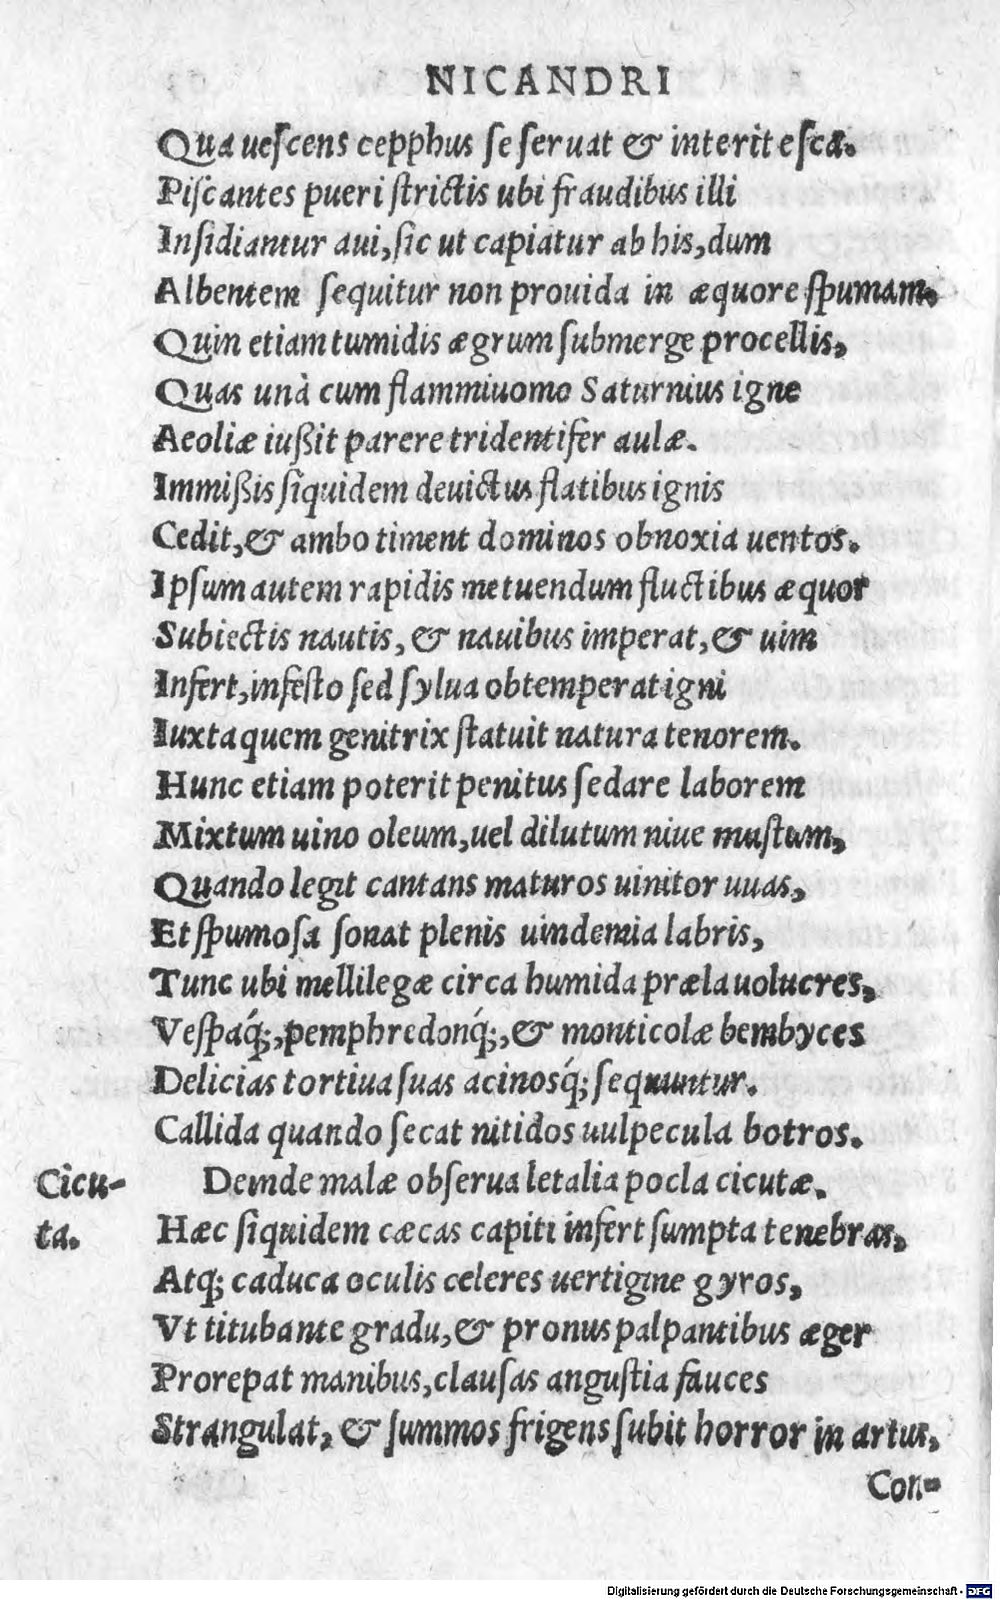 NICANDRI
Qua uescens cepphus se seruat & interit esca.
Piscantes pueri strictis ubi fraudibus illi
Insidiantur aui, sic ut capiatur ab his, dum
Albentem sequitur non prouida in æquore spumam.
Quin etiam tumidis ægrum submerge procellis,
Quas unà cum flammiuomo Saturnius igne
Aeoliæ iußit parere tridentifer aulæ.
Immißis siquidem deuictus flatibus ignis
Cedit, & ambo timent dominos obnoxia uentos.
Ipsum autem rapidis metuendum fluctibus æquor
Subiectis nautis, & nauibus imperat, & uim
Infert, infesto sed sylua obtemperat igni
Iuxta quem genitrix statuit natura tenorem.
Hunc etiam poterit penitus sedare laborem
Mixtum uino oleum, uel dilutum niue mustum,
Quando legit cantans maturos uinitor uuas,
Et spumosa sonat plenis uindemia labris,
Tunc ubi mellilegæ circa humida præla uolucres,
Vespáq;, pemphredonq́;, & monticolæ bembyces
Delicias tortiua suas acinosq́; sequuntur.
Callida quando secat nitidos uulpecula botros.
Cicu- Deinde malæ obserua letalia pocla cicutæ.
ta. Hæc siquidem cæcas capiti infert sumpta tenebras,
Atq; caduca oculis celeres uertigine gyros,
Vt titubante gradu, & pronus palpantibus æger
Prorepat manibus, clausas angustia fauces
Strangulat, & summos frigens subit horror in artus,
Con-
Digitalisierung gefördert durch die Deutsche Forschungsgemeinschaft - DFG